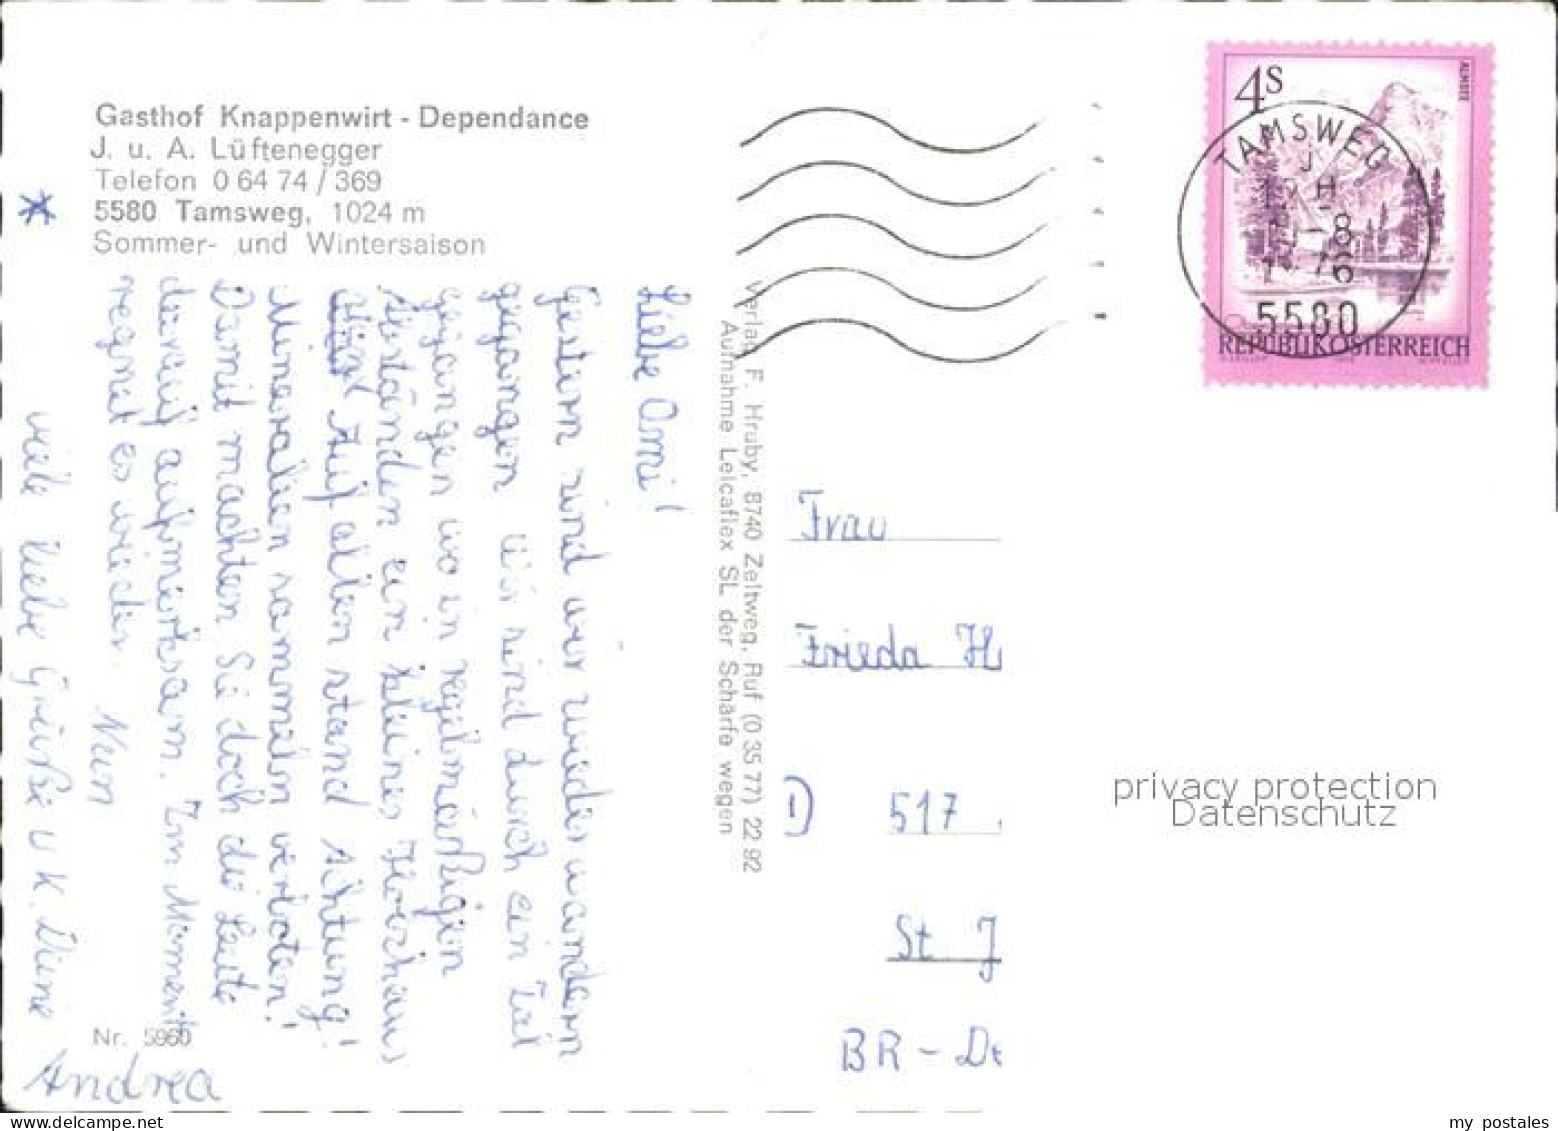 Gasthof Knappenwirt - Dependance
J. u. A. Lüftenegger
Telefon 0 64 74 / 369
5580 Tamsweg, 1024 m
Sommer- und Wintersaison
Liebe Omi!
Gestern sind wir wieder wandern
gegangen wir sind durch ein Tal
gegangen wo in regelmäßigen
Abständen ein kleines Häuschen
stand Auf allen stand Achtung!
Mineralien sammeln verboten!
Damit machten Sie doch die Leute
darauf aufmerksam. Im Moment
regnet es wieder. Nun
viele liebe Grüße u K. Deine
Andrea
Nr. 5960
Verlag F. Hruby, 8740 Zeltweg, Ruf (0 35 77) 22 92
Aufnahme Leicaflex SL der Schärfe wegen
4S
ALMSEE
REPUBLIK ÖSTERREICH
TAMSWEG
5580
Frau
Frieda H
D 517
St. J
BR - De
privacy protection
Datenschutz
www.delcampe.net
my_postales